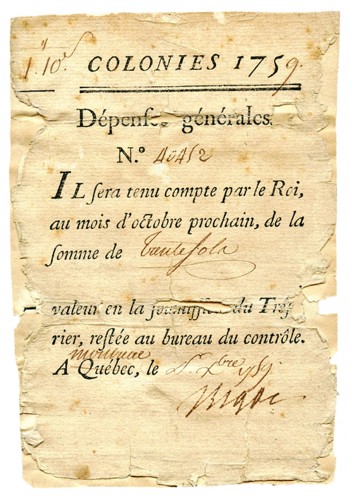 1# 10s COLONIES 1759.
Dépenses générales.
N.° 40452
IL sera tenu compte par le Roi,
au mois d'octobre prochain, de la
somme de trente sols
valeur en la soumission du Tréso-
rier, restée au bureau du contrôle.
A Québec, le Xbre 1759
Bigot